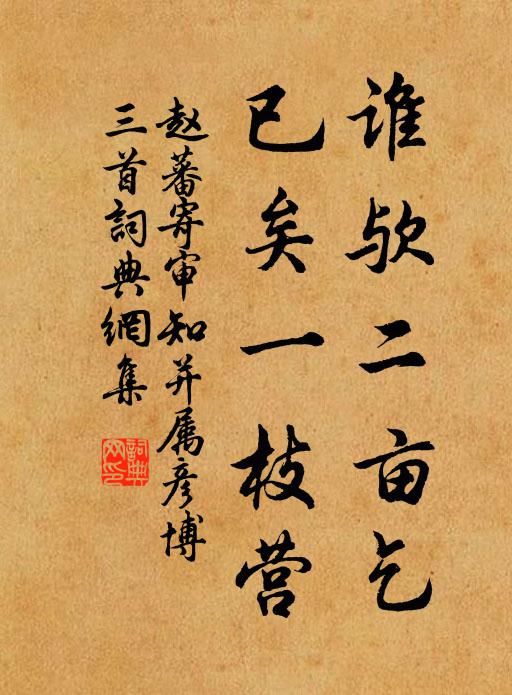 谁欤二亩乞
已矣一枝营
赵蕃寄审知并属彦博
三首詞典網集
詞典
网印